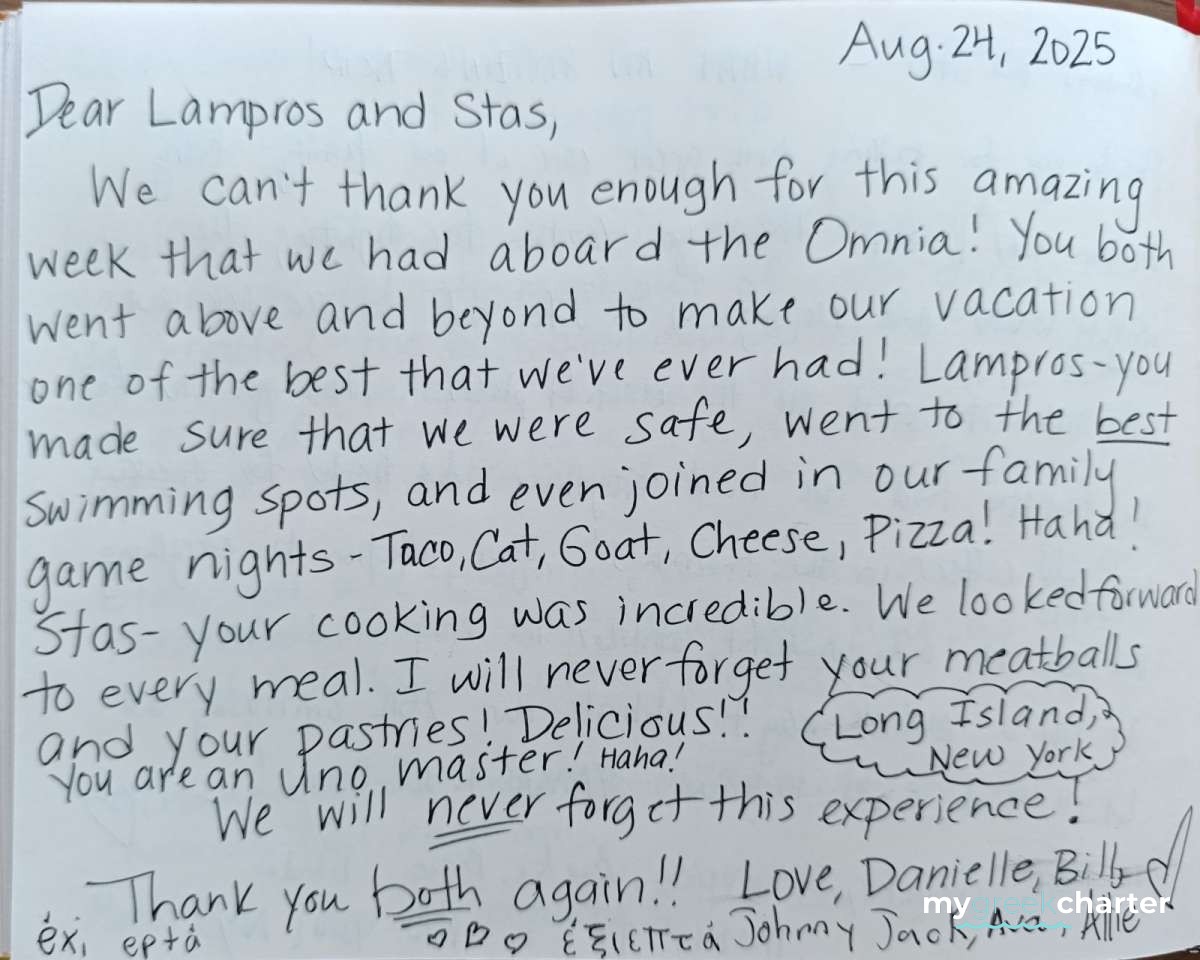 Aug. 24, 2025
Dear Lampros and Stas,
We can't thank you enough for this amazing
week that we had aboard the Omnia! You both
went above and beyond to make our vacation
one of the best that we've ever had! Lampros-you
made sure that we were safe, went to the best
swimming spots, and even joined in our family
game nights - Taco, Cat, Goat, Cheese, Pizza! Haha!
Stas- your cooking was incredible. We looked forward
to every meal. I will never forget your meatballs
and your pastries! Delicious!!
Long Island,
New York
You are an Uno master! Haha!
We will never forget this experience!
Thank you both again!! Love, Danielle, Billy
mygreekcharter
éxi eptá έξι επτά Johnny Jack, Ava, Allie